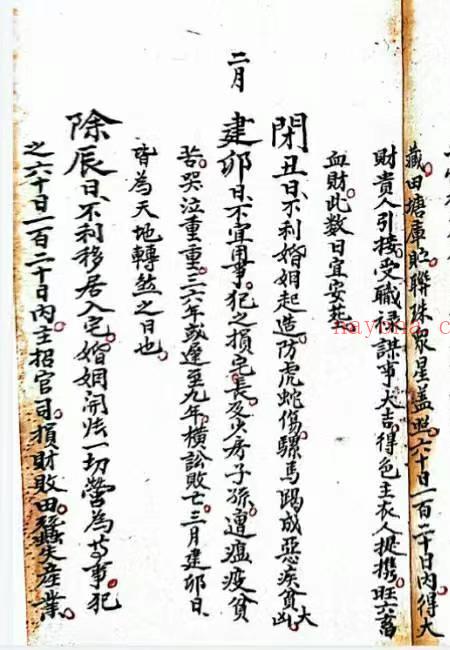 藏田塘庫貯聯珠眾星蓋照六十日一百二十日內得大
財貴人引接受職祿謀事大吉得色主衣人提携旺六畜
血財此數日宜安葬
閉丑日不利婚姻起造防虎蛇傷騾馬踢成惡疾貧大凶
二月
建卯日不宜用事犯之損宅長及少房子孫遭瘟疫貧
苦哭泣重重三六年或達至九年橫訟敗亡三月建卯日
皆為天地轉煞之日也
除辰日不利移居入宅婚姻開張一切營為等事犯
之六十日一百二十日內主招官司損財敗田蠶失産業